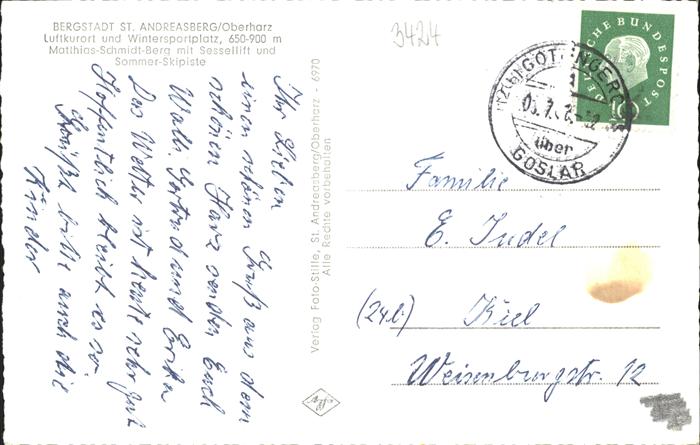 BERGSTADT ST. ANDREASBERG/Oberharz
Luftkurort und Wintersportplatz, 650-900 m
Matthias-Schmidt-Berg mit Sessellift und
Sommer-Skipiste
3424
Ihr Lieben
einen schönen Gruß aus dem
schönen Harz senden Euch
Walli Gertrud und Erika
Das Wetter ist heute sehr gut
Hoffentlich bleibt es so.
Grüßt bitte auch die
Kinder
Verlag Foto-Stille, St. Andreasberg/Oberharz - 6970
Alle Rechte vorbehalten
DEUTSCHE BUNDESPOST
10
über
GOSLAR
Familie
E. Judel
(24b) Kiel
Weisenburgstr. 12